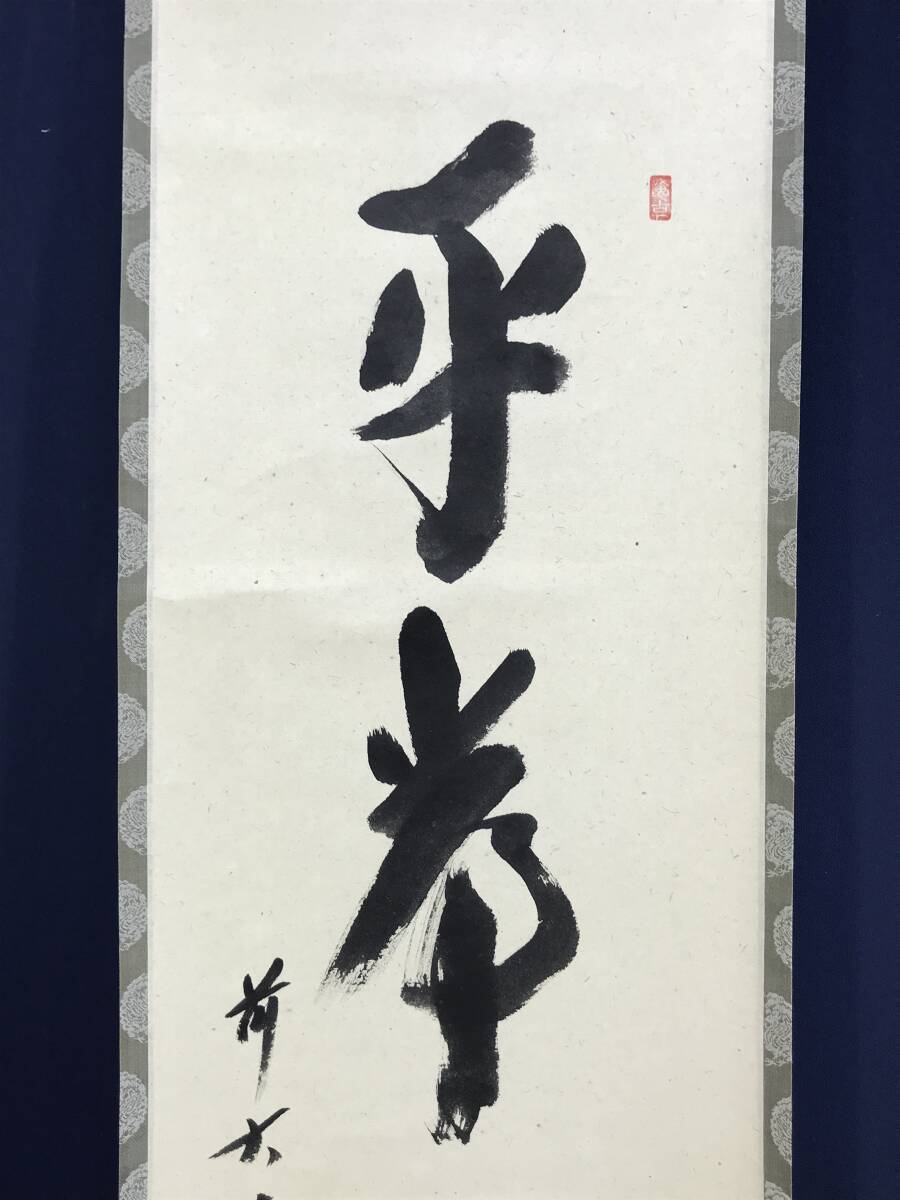 平常
前大